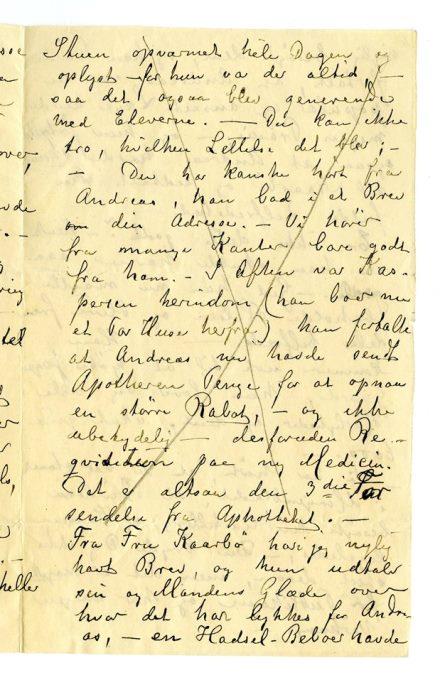 Stuen opvarmet hele Dagen og
oplyst for hun va der altid, -
saa det ogsaa blev generende
med Eleverne. - Du kan ikke
tro, hvilken Lettelse det blev; -
- Du har kanske hørt fra
Andreas, han bad i et Brev
om din Adresse. - Vi hører
fra mange Kanter bare godt
fra ham. - I Aften var Kas-
persen herindom (han boer nu
et Par Huse herfra) han fortalte
at Andreas nu havde sendt
Apotheren Penge for at opnaa
en større Rabat, - og ikke
ubetydelig - desforuden Re-
qvisition paa ny Medicin.
Det er altsaa den 3die
sendelse fra Aphotheket. -
Fra Fru Kaarbø har jeg nylig
havt Brev, og hun udtaler
sin og Mandens Glæde over
hvor det har lykkes for Andre-
as, - en Hadsel-Beboer havde
over
heller